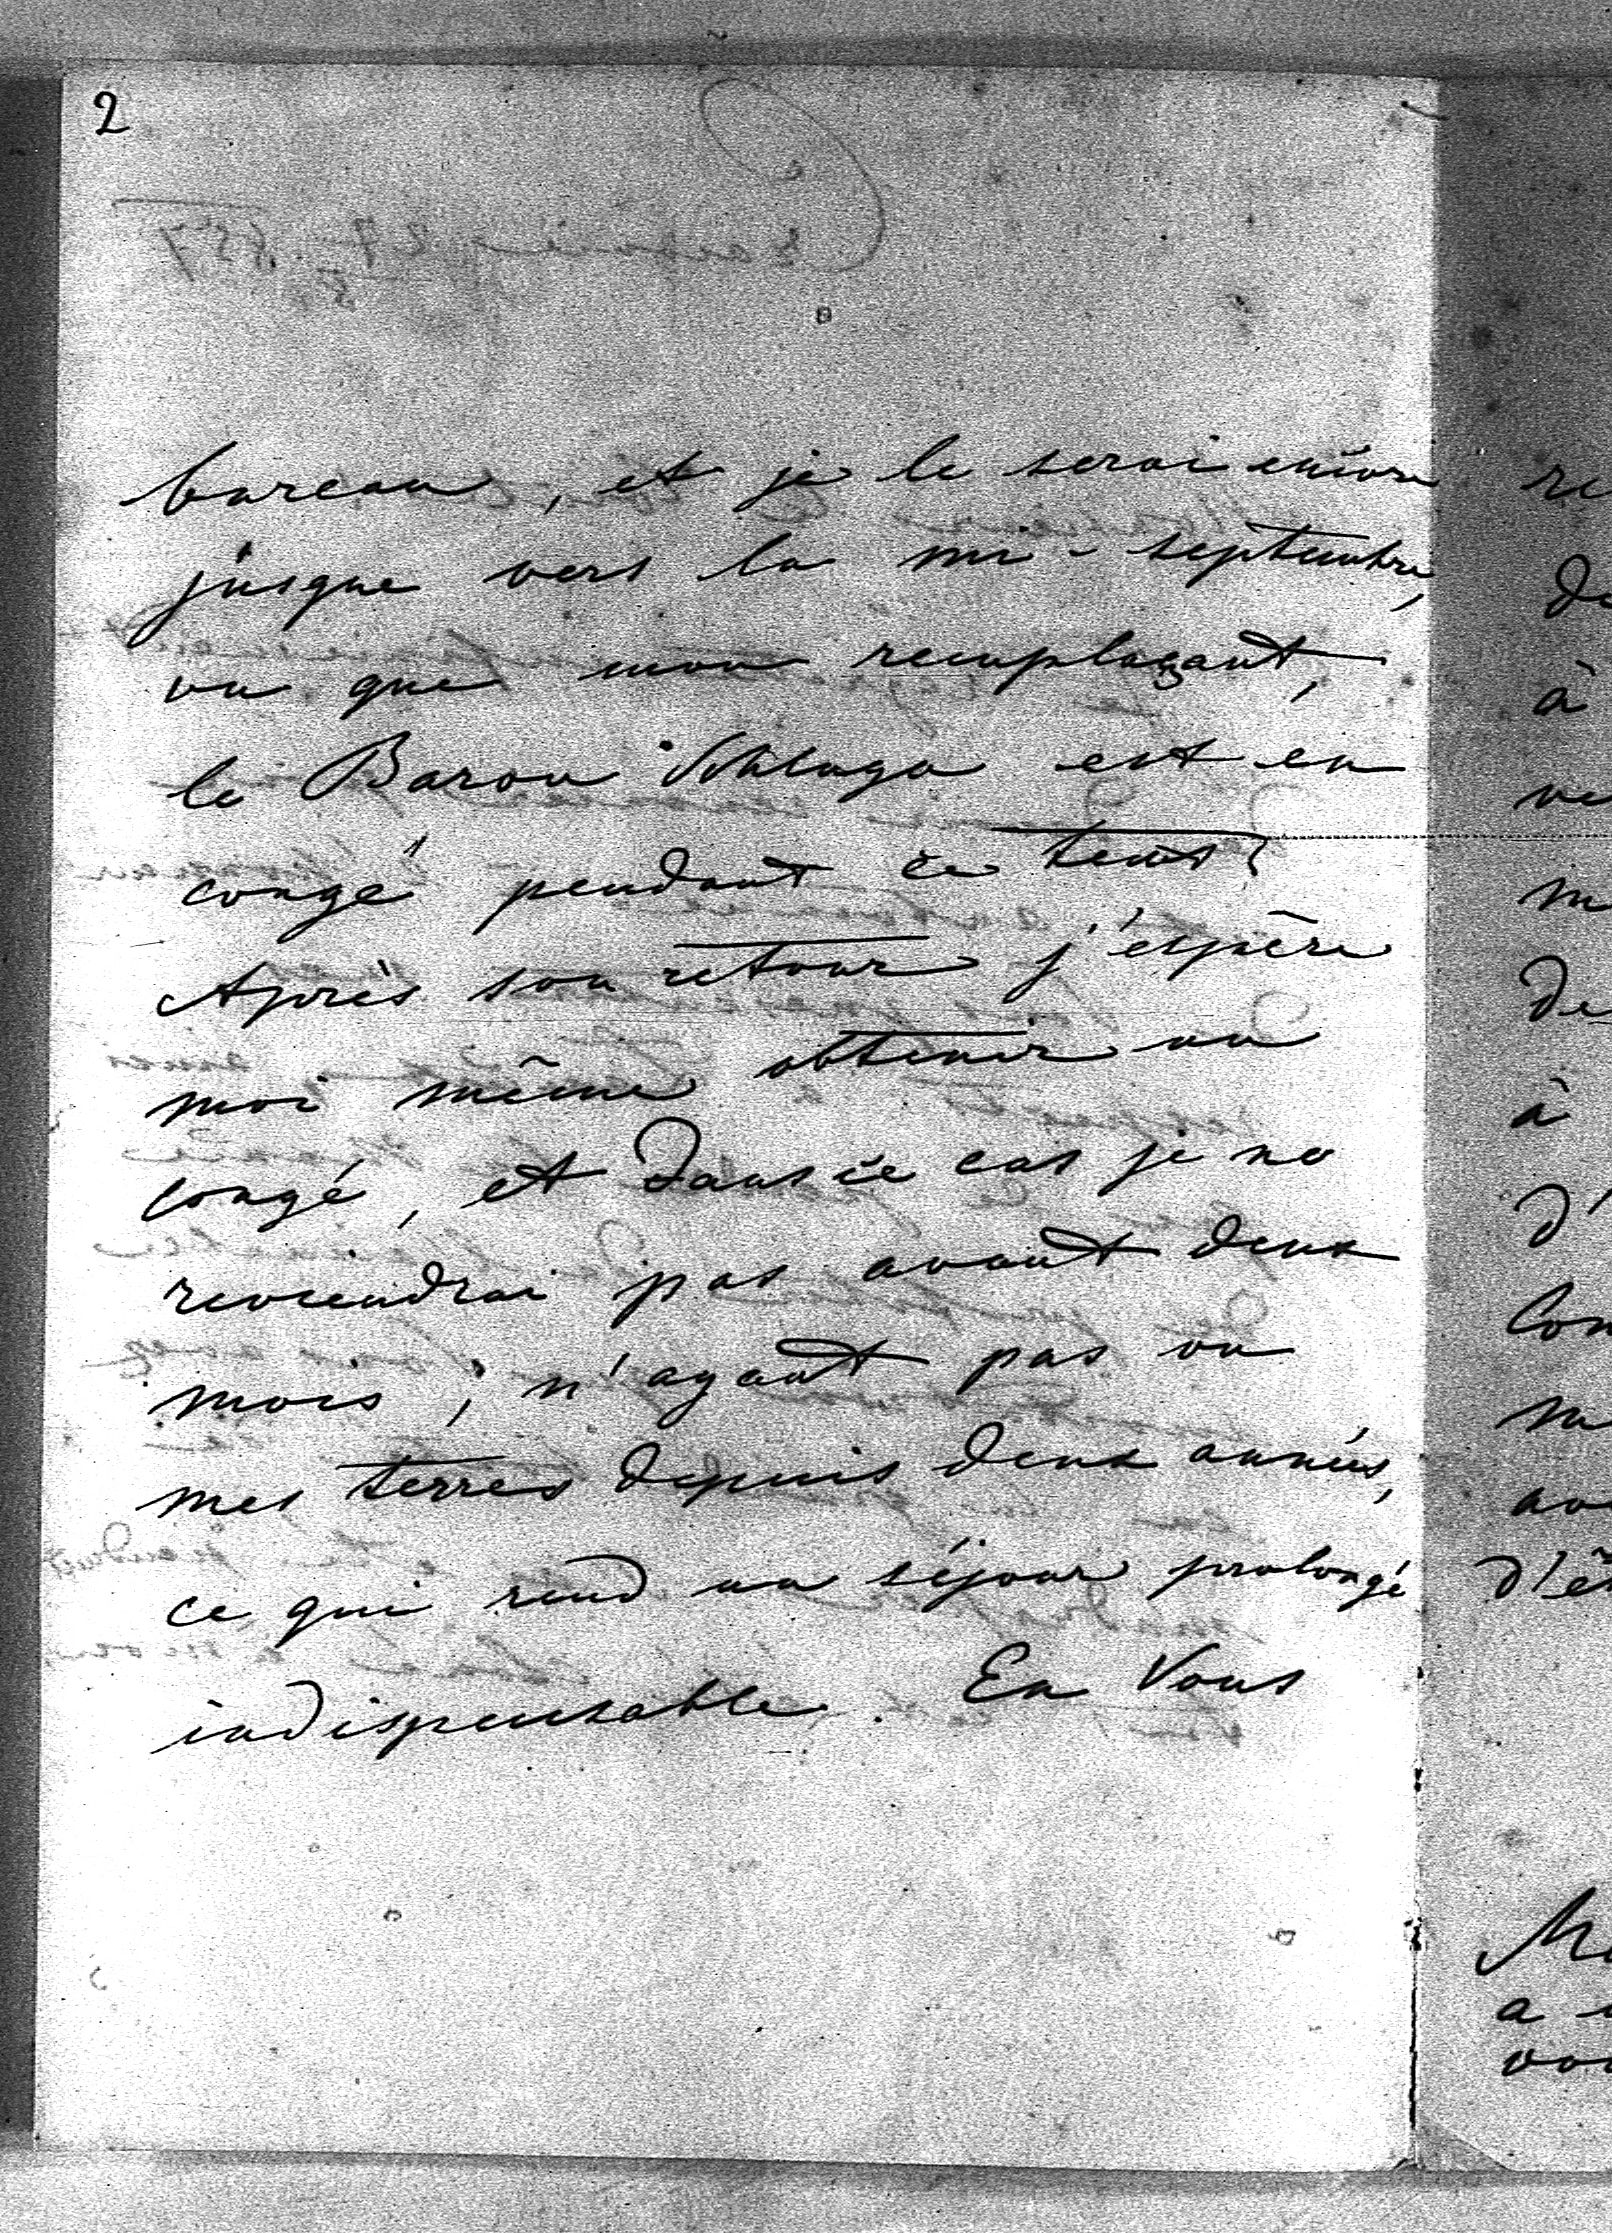 2
bureau, et je le serai encore
jusque vers la mi-septembre,
vu que mon remplaçant,
le Baron est en
congé pendant ce tems.
Après son retour j'espère
moi même obtenir un
congé, et dans ce cas je ne
reviendrai pas avant deux
mois, n'ayant pas vu
mes terres depuis deux années,
ce qui rend un séjour prolongé
indispensable. En Vous